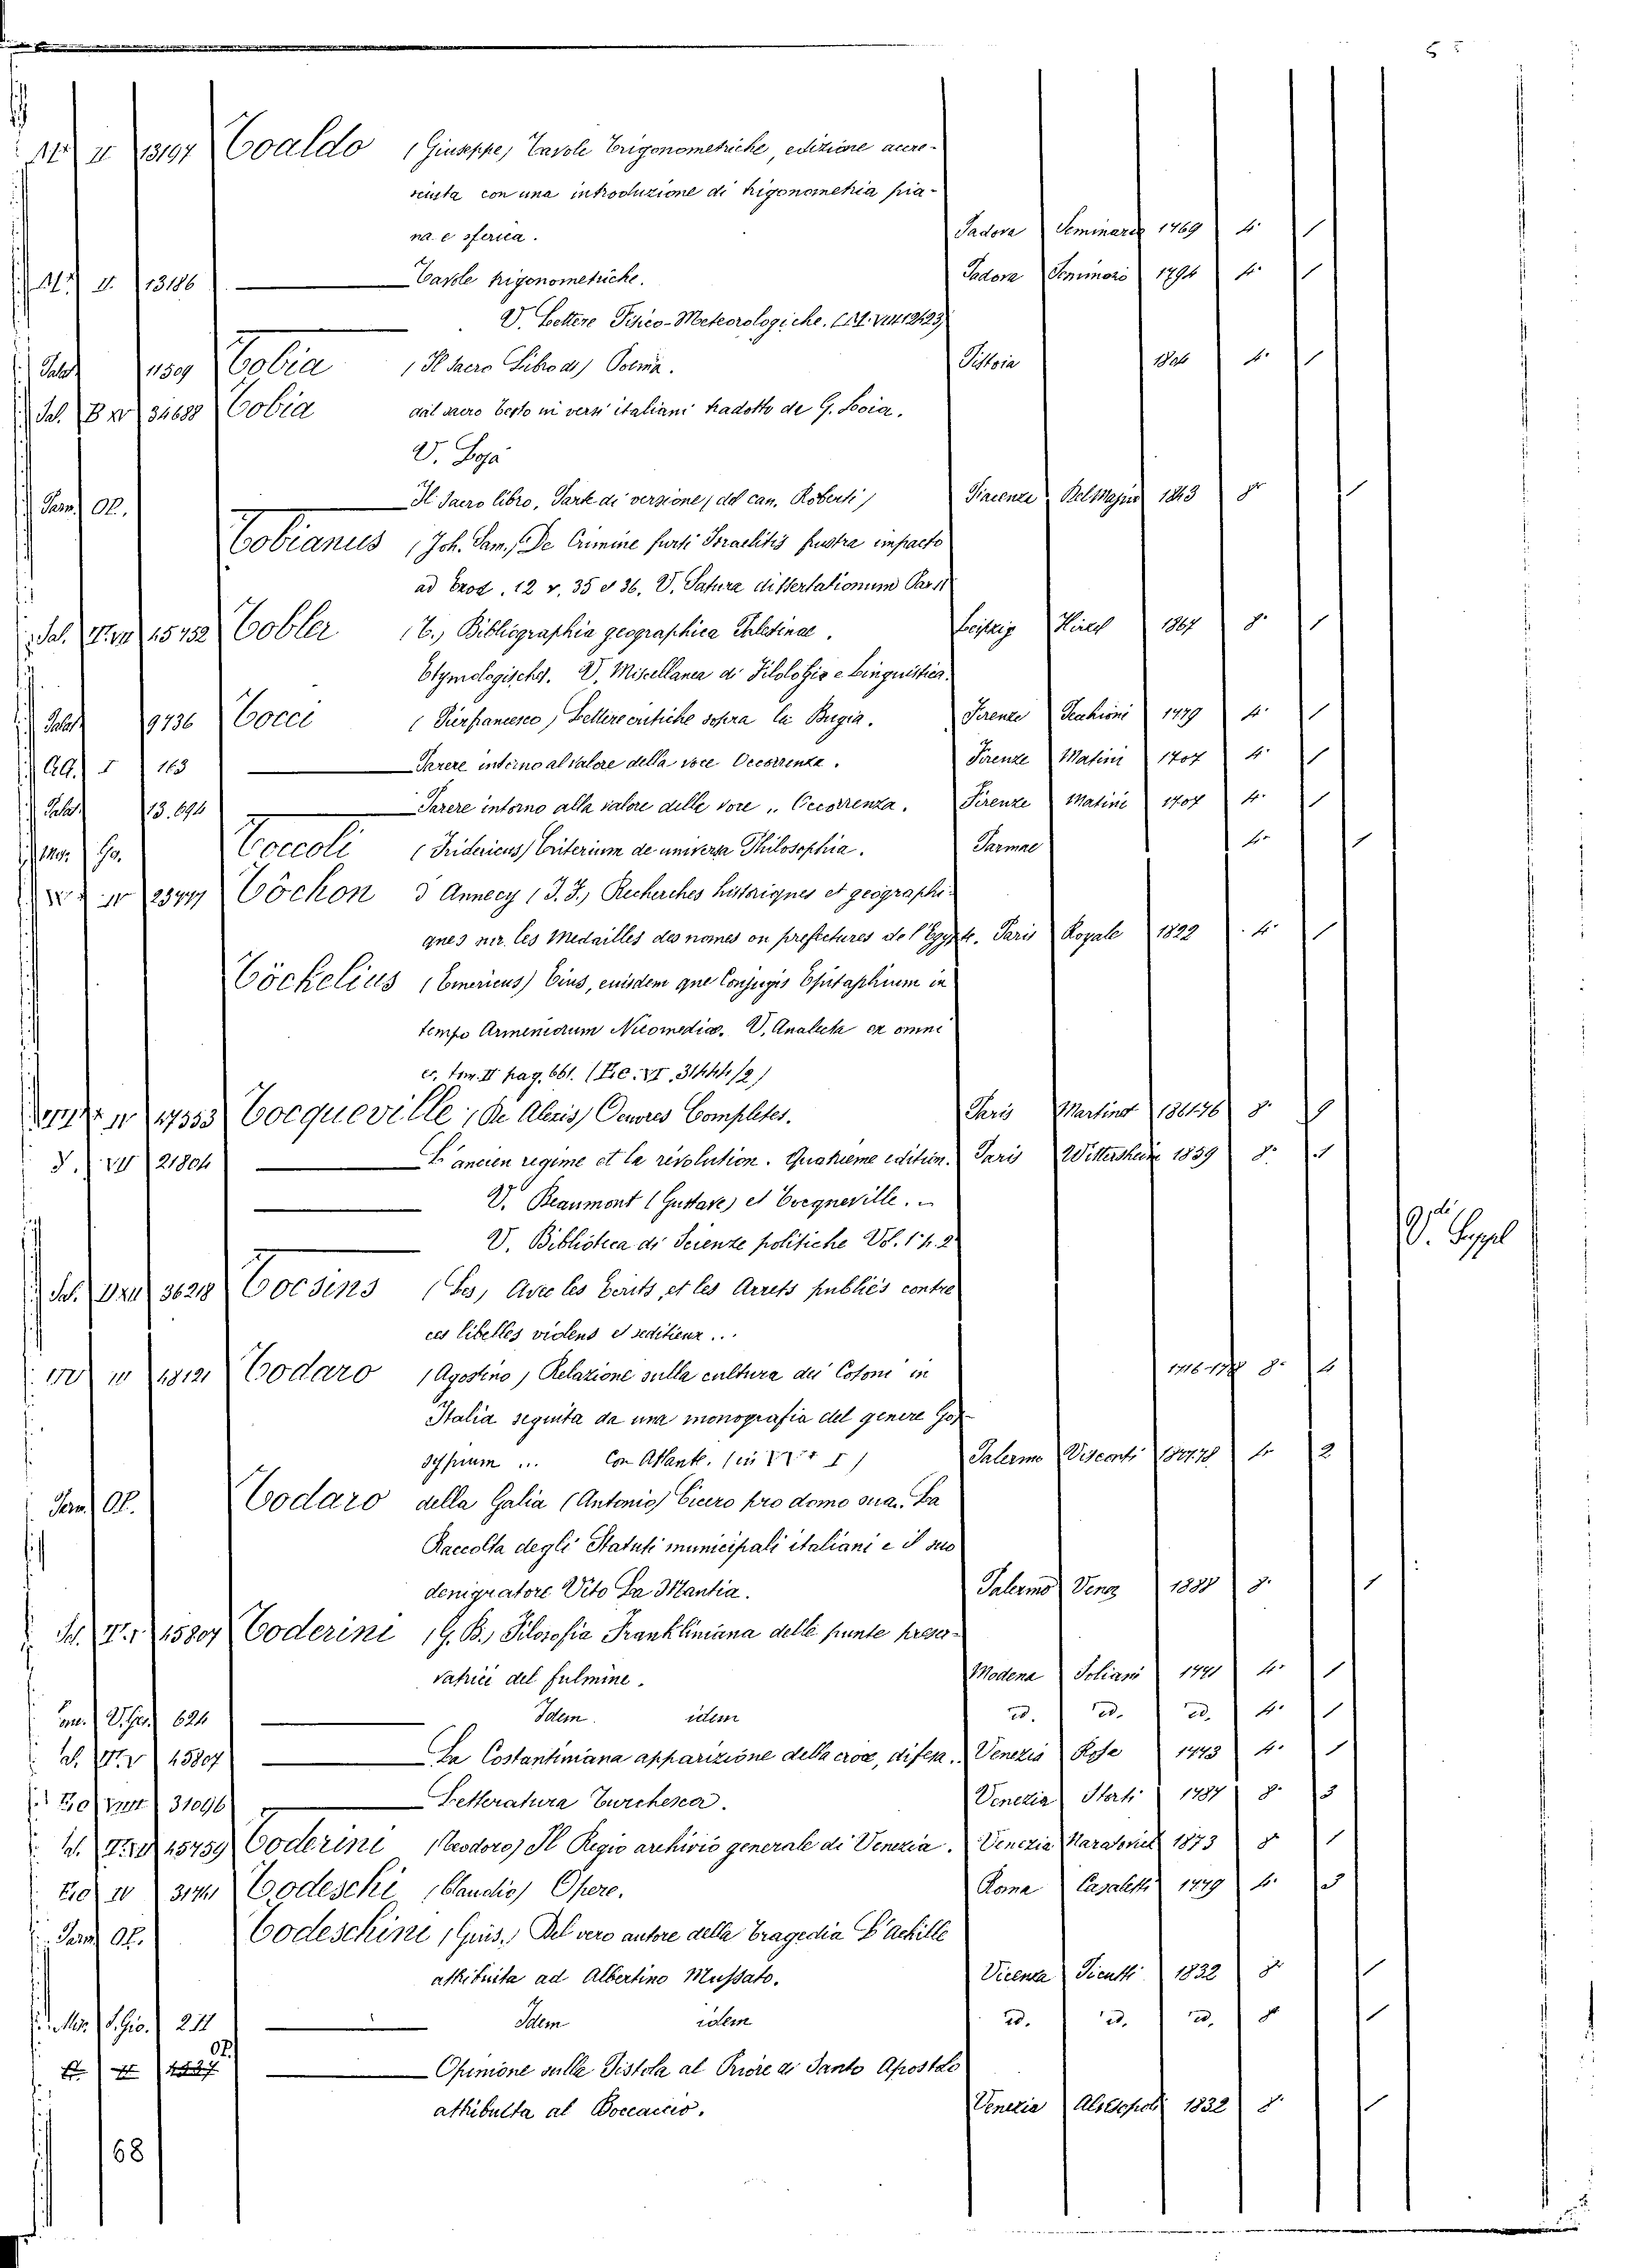 II 13197 Toaldo (Giuseppe) Tavole Trigonometriche, edizione accre-
sciuta con una introduzione di trigonometria pia-
na e sferica. Padova Seminario 1769 4° 1
II 13186 Tavole trigonometriche. Padova Seminario 1794 4° 1
V. Lettere Fisico-Meteorologiche.
Salat 11509 Tobia (Il sacro Libro di) Poema. Pistoia 4° 1
Sal. B XV 34688 Tobia dal sacro testo in versi italiani tradotto da G. Loia.
V. Loja
Parm. OP. Il sacro libro, Parte di versione (del can. Roberti) Piacenza Del Majno 1843 8° 1
Tobianus (Joh. Sam.) De Crimine furti Israelitis frustra impacto
ad Exod. 12 v. 35 et 36. V. Satura dissertationum Pars II
Sal. 15752 Tobler (T.) Bibliographia geographica Palestinae. Leipzig Hirzel 1867 8° 1
Etymologisches. V. Miscellanea di Filologia e Linguistica.
Salat 9736 Tocci (Pierfrancesco) Lettere critiche sopra la Bugia. Firenze 1779 4° 1
AG. I 163 Parere intorno al valore della voce Occorrenza. Firenze Matini 1707 4° 1
Salat. 13.694 Parere intorno alla valore delle voce „ Occorrenza. Firenze Matini 1707 4° 1
Mor. Go. Toccoli (Fridericus) Criterium de universa Philosophia. Parmae 4° 1
IV 23477 Töchon d'Annecy (J. F.) Recherches historiques et geographi-
ques sur les Medailles des nomes ou prefectures de l'Egypte. Paris Royale 1822 4° 1
Töckelius (Emericus) Eius, euisdem que Conjugis Epitaphium in
tempo Armeniorum Nicomediae. V. Analecta ex omni
es. tom. II pag. 661. (Ee. VI. 31444/2)
IV 17353 Tocqueville (De Alexis) Oeuvres Completes. Paris Martinet 8° 9
21804 L'ancien regime et la révolution. Quatrieme edition. Paris Wittersheim 1859 8° 1
V. Beaumont (Gustave) et Tocqueville.
V. Biblioteca di Scienze politiche Vol. 1 p. 2
Sal. 3628 Tocsins (Les) Avec les Ecrits et les Arrets publiés contre
ces libelles violens et seditieux...
III 48121 Todaro (Agostino) Relazione sulla cultura dei Cotoni in
Italia seguita da una monografia del genere Gos-
sypium ... Con Atlante. Palermo Visconti 1877.78 4° 2
Parm. OP. Todaro della Galia (Antonio) Cicero pro domo sua. La
Raccolta degli Statuti municipali italiani e il suo
denigratore Vito La Mantia. Palermo Vena 188 8° 1
45807 Toderini (G. B.) Filosofia Frankliniana delle punte preser-
vatrici del fulmine. Modena Soliani 1771 4° 1
624 Idem idem id. id. id. 4° 1
45807 La Costantiniana apparizione della croce, difesa. Venezia Rosa 1773 4° 1
31096 Letteratura Turchesca. Venezia Storti 1787 8° 3
45759 Toderini (Teodoro) Il Regio archivio generale di Venezia. Venezia Naratovich 1873 8° 1
IV 31741 Todeschi (Claudio) Opere. Roma Casaletti 1779 4° 3
Parm. OP. Todeschini (Guis.) Del vero autore della Tragedia L'achille
attribuita ad Albertino Mussato. Vicenza Picutti 1832 8° 1
Mor. S. Gio. 211 Idem idem id. id. id. 8° 1
OP. Opinione sulla Pistola al Priore di Santo Apostolo
attribuita al Boccaccio. Venezia Alvisopoli 1832 8° 1
68